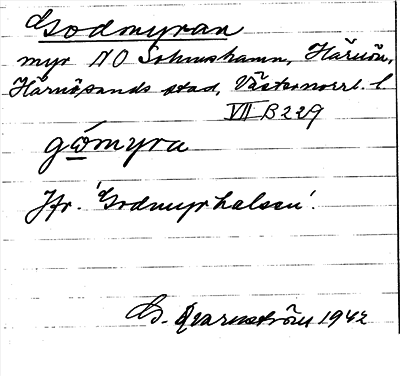 Godmyran
myr NO Solumshamn, Härnön,
Härnösands stad, Västernorrl. l.
VII B 229
gώmyra
Jfr. 'Godmyrhalsen'.
G. Qvarnström 1942